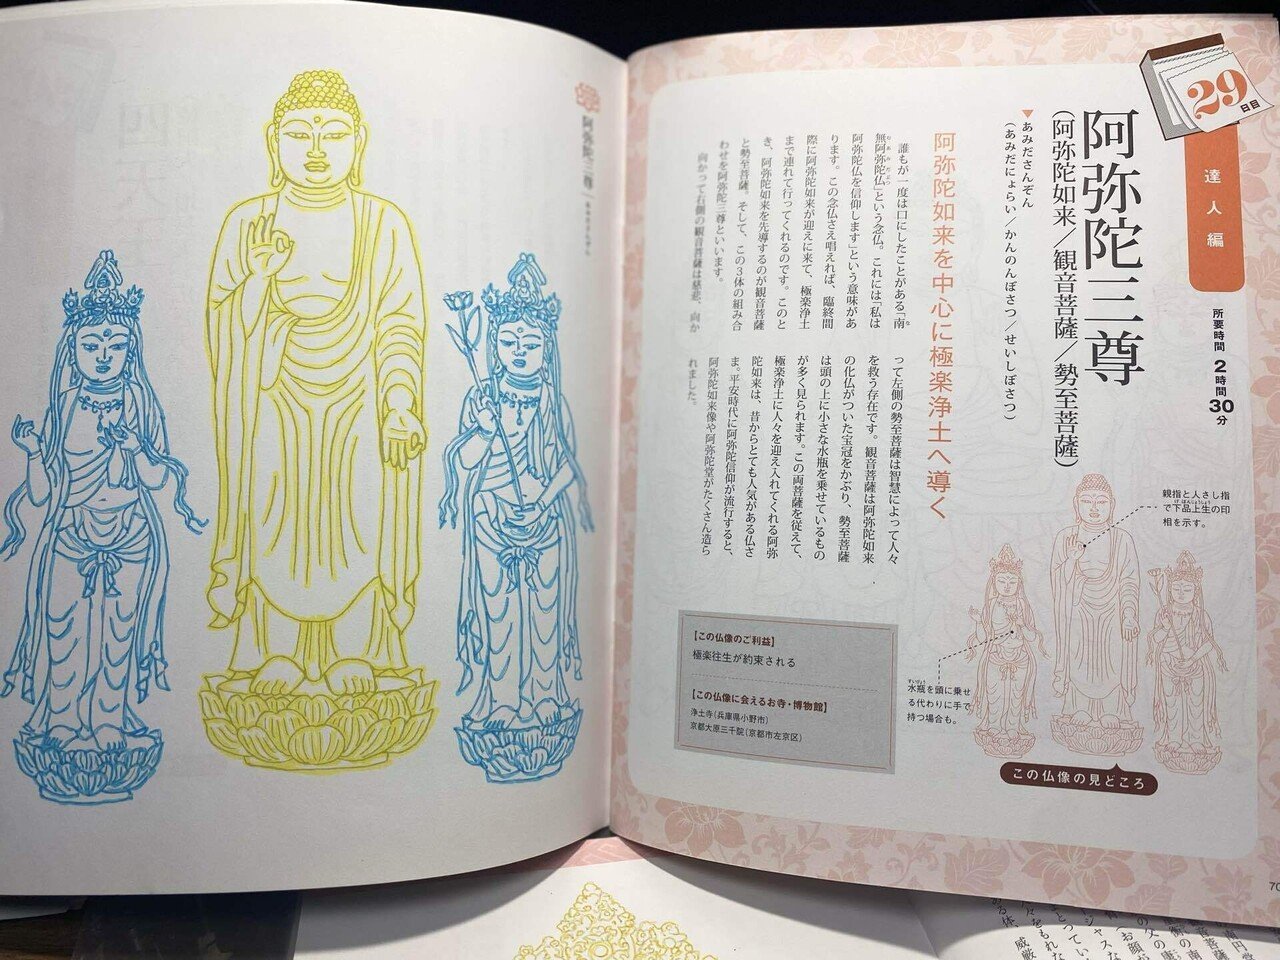 29日目
達人編
所要時間 2時間30分
阿弥陀三尊
(阿弥陀如来/観音菩薩/勢至菩薩)
▼あみださんぞん
(あみだにょらい/かんのんぼさつ/せいしぼさつ)
阿弥陀如来を中心に極楽浄土へ導く
誰もが一度は口にしたことがある「南
無阿弥陀仏」という念仏。これには「私は
阿弥陀仏を信仰します」という意味があ
ります。この念仏さえ唱えれば、臨終間
際に阿弥陀如来が迎えに来て、極楽浄土
まで連れて行ってくれるのです。このと
き、阿弥陀如来を先導するのが観音菩薩
と勢至菩薩。そして、この3体の組み合
わせを阿弥陀三尊といいます。
向かって右側の観音菩薩は慈悲、向か
って左側の勢至菩薩は智慧によって人々
を救う存在です。観音菩薩は阿弥陀如来
の化仏がついた宝冠をかぶり、勢至菩薩
は頭の上に小さな水瓶を乗せているもの
が多く見られます。この両菩薩を従えて、
極楽浄土に人々を迎え入れてくれる阿弥
陀如来は、昔からとても人気がある仏さ
ま。平安時代に阿弥陀信仰が流行すると、
阿弥陀如来像や阿弥陀堂がたくさん造ら
れました。
親指と人さし指
で下品上生の印
相を示す。
水瓶を頭に乗せ
る代わりに手で
持つ場合も。
この仏像の見どころ
【この仏像のご利益】
極楽往生が約束される
【この仏像に会えるお寺・博物館】
浄土寺(兵庫県小野市)
京都大原三千院(京都市左京区)
70
阿弥陀三尊 あみださんぞん